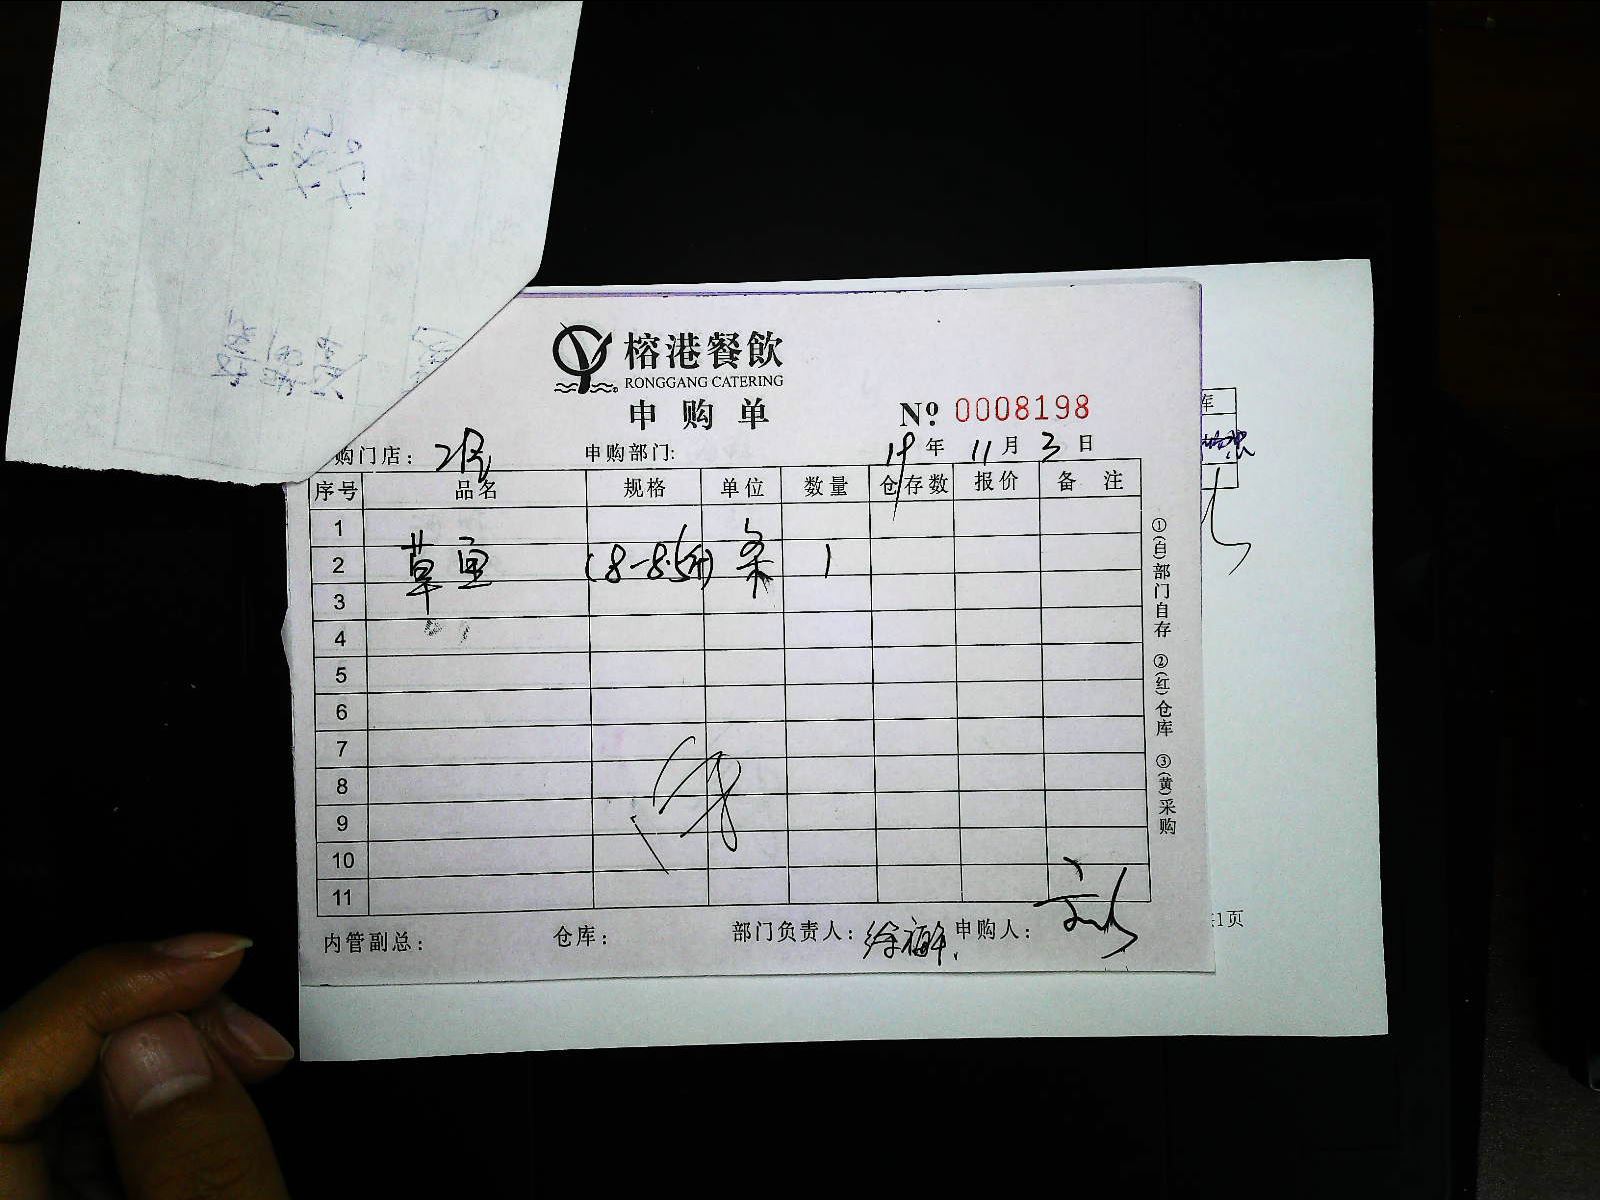 榕港餐飲
RONGGANG CATERING
申购单
№ 0008198
购门店: 申购部门: 19年 11月 3日
序号 品名 规格 单位 数量 仓存数 报价 备注
1
2 草鱼 (8-8.5斤) 条 1
3
4
5
6
7
8
9
10
11
内管副总: 仓库: 部门负责人: 申购人:
①(自)部门自存 ②(红)仓库 ③(黄)采购
库
1页